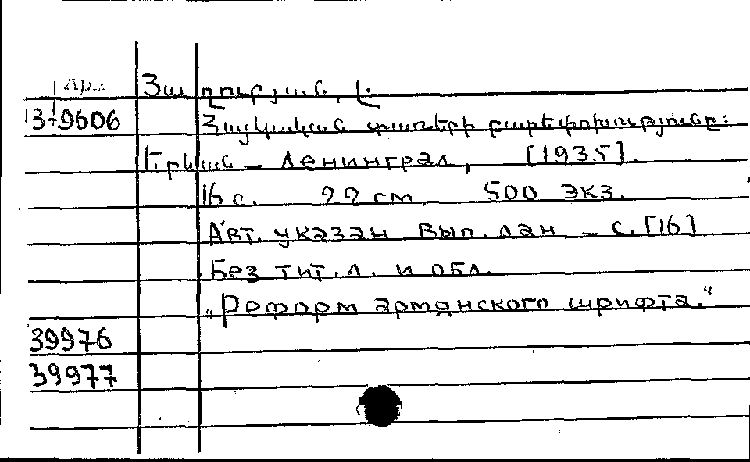 Յաղուբյան, Լ.
3-9606
Հայկական տառերի բարեփոխությունը:
Երևան – Ленинград, [1935].
16 с. 22 см 500 экз.
Авт. указан вып. дан – с. [16]
Без тит. л. и обл.
„Реформ армянского шрифта."
39976
39977